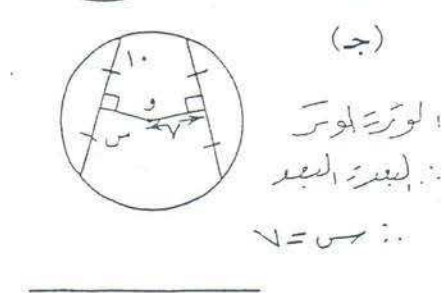 (ج)
١٠
و
س
٧
الوتر = الوتر
∴ البعد = البعد
∴ س = ٧